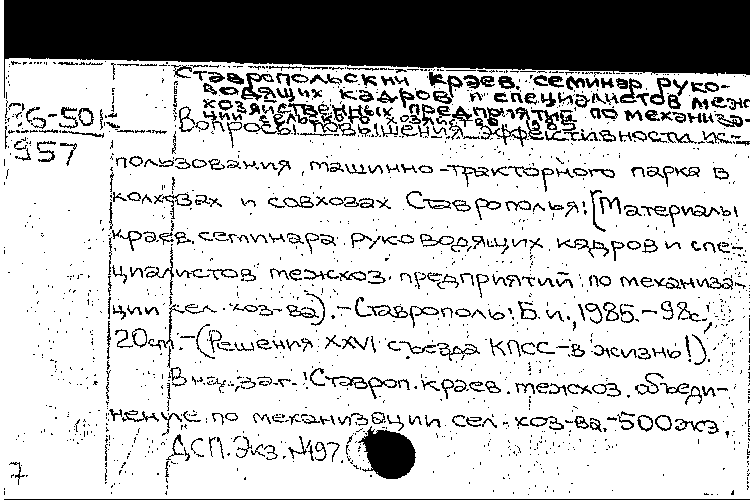 Ставропольский краев. семинар руко-
водящих кадров и специалистов межхо
хозяйственных предприятий по механиза-
ции сельского хозяйства. 1985.
86-50к
957
Вопросы повышения эффективности ис-
пользования машинно-тракторного парка в
колхозах и совхозах Ставрополья: [Материалы
краев. семинара руководящих кадров и спе-
циалистов межхоз. предприятий по механиза-
ции сел. хоз-ва). - Ставрополь: Б.и., 1985. - 98с.;
20см. - (Решения XXVI съезда КПСС - в жизнь!).
В над.заг.: Ставроп. краев. межхоз. объеди-
нение по механизации сел. хоз-ва. - 500экз.
ДСП. Экз. №497.
7